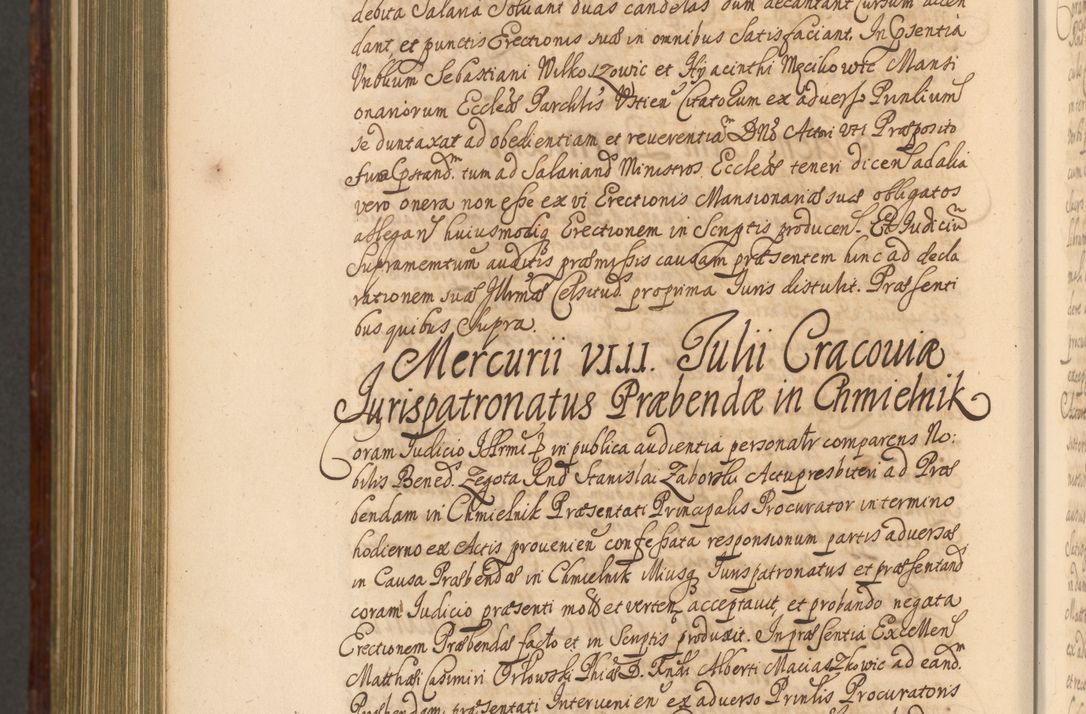 debita Salaria Solvant duas candelas dum decantant Cursum accen
dant, et punctis Erectionis suæ in omnibus Satisfaciant. In Pñsentia
Vnblium Sebastiani Wilkoszowic et Hyacinthi Męcikowic Mansi
onariorum Eccleæ Parchlis Vstien̄ Citatorum ex adverso Prinlium
se duntaxat ad obedientiam et reverentiam Dn̄o Actori uti Præposito
tum ad Salariand Ministros Eccleæ teneri dicen̄ ad alia
vero onera non esse ex vi Erectionis Mansionariæ suæ obligatos
allegan̄ huiusmodiq Erectionem in Scriptis producen̄. Et Iudicium
Supramemtum auditis præmissis causam præsentem hinc ad decla
rationem suæ Illrmæ Celsitud. pro prima Iuris distulit. Præsenti
bus quibus Supra.
Mercurii VIII. Iulii Cracoviæ
Iurispatronatus Præbendæ in Chmielnik
Coram Iudicio Illrmi P in publica audientia personalr comparens No:
bilis Bened. Zegota Rnd Stanislai Zaborski Actu presbiteri ad Præ
bendam in Chmielnik Præsentati Principalis Procurator in termino
hodierno ex Actis provenien̄ confessata responsionum partis adversæ
in Causa Præbendæ in Chmielnik Iliusq Iurispatronatus et præsentand
coram Iudicio præsenti mot et verten acceptavit, et probando negata
Erectionem Præbendæ facto et in Scriptis produxit. In præsentia Excellen
Matthæi Casimiri Orłowski Phiæ D. Rndi Alberti Maciaszkowic ad eand.
Præbendam præsentati Intervenien̄ ex adverso Prinlis Procuratoris